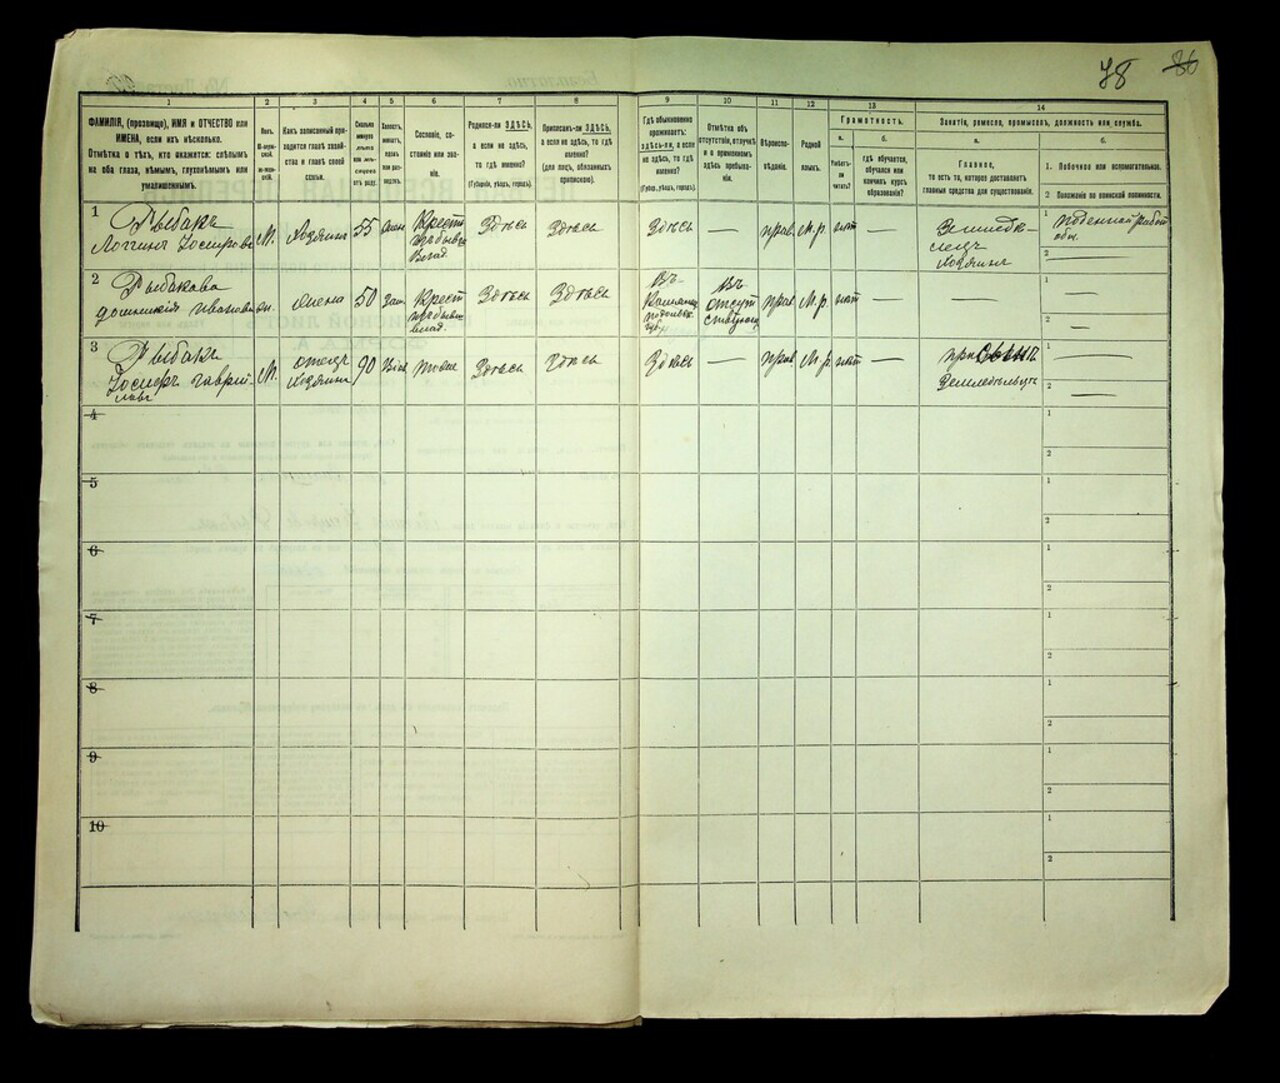 78 86
1 2 3 4 5 6 7 8 9 10 11 12 13 14
ФАМИЛІЯ, (прозвище), ИМЯ и ОТЧЕСТВО или
ИМЕНА, если ихъ нѣсколько.
Отмѣтка о тѣхъ, кто окажется: слѣпымъ
на оба глаза, нѣмымъ, глухонѣмымъ или
умалишеннымъ.
Полъ.
М-муж-
ской.
Ж-жен-
скій.
Какъ записанный при-
ходится главѣ хозяй-
ства и главѣ своей
семьи.
Сколько
минуло
лѣтъ
или мѣ-
сяцевъ
отъ роду.
Холостъ,
женатъ,
вдовъ
или раз-
веденъ.
Сословіе, со-
стояніе или зва-
ніе.
Родился-ли ЗДѢСЬ,
а если не здѣсь,
то гдѣ именно?
(Губернія, уѣздъ, городъ).
Приписанъ-ли ЗДѢСЬ,
а если не здѣсь, то гдѣ
именно?
(для лицъ, обязанныхъ
припискою).
Гдѣ обыкновенно
проживаетъ:
здѣсь-ли, а если
не здѣсь, то гдѣ
именно?
(Губ., уѣздъ, городъ).
Отмѣтка объ
отсутствіи, отлучкѣ
и о временномъ
здѣсь пребыва-
ніи.
Вѣроиспо-
вѣданіе.
Родной
языкъ.
Грамотность.
а.
Умѣетъ-
ли
читать?
б.
гдѣ обучается,
обучался или
кончилъ курсъ
образованія?
Занятіе, ремесло, промыселъ, должность или служба.
а.
Главное,
то есть то, которое доставляетъ
главныя средства для существованія.
б.
1. Побочное или вспомогательное.
2 Положеніе по воинской повинности.
1 Рыбакъ
Логгинъ Іосифовъ М. Хозяинъ 55 Жен Крест Здѣсь Здѣсь Здѣсь — прав. М.р. нѣт —
Хозяинъ
1
2 —
2 Рыбакова
50 Зам Крест Здѣсь Здѣсь
Въ
отсут
прав М.р. нѣт — —
1 —
2 —
3 Рыбакъ
Іосифъ Гаврил
М. отецъ
хозяина 90 Вдов тоже Здѣсь Здѣсь Здѣсь — прав М.р. нѣт —
при сынѣ
Земледѣльцѣ
1 —
2 —
4
1
2
5
1
2
6
1
2
7
1
2
8
1
2
9
1
2
10
1
2